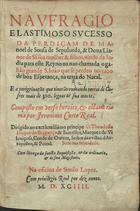 NAVFRAGIO
E LASTIMOSO SUCESSO
DA PERDIÇAM DE MA
noel de Sousa de Sepulueda, & Dona Lia-
nor de Sá sua molher, & filhos, vindo da In-
dia para este Reyno na nao chamada o ga-
lião grande S. Ioão que se perdeo no cabo
de boa Esperança, na terra do Natal.
E a peregrinação que tiuerão rodeando terras de Ca-
fres mais de 300. legoas tè sua morte.
Composto em verso heroico, & octaua ri-
ma por Ieronimo Corte Real.
Dirigido ao excelentissimo principe
Duque de Bragança,
Com licença da Sancta Inquisição,
Na officina de Simão Lopez.
M. D. XCIIII.